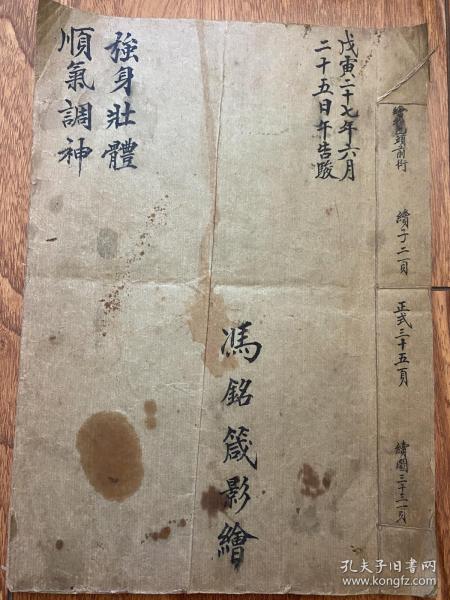 戊寅二十七年六月
二十五日午告駿
強身壯體
順氣調神
馮銘箴影繪
續于二頁
正式三十五頁
續圖三十三頁
孔夫子旧书网
www.kongfz.com